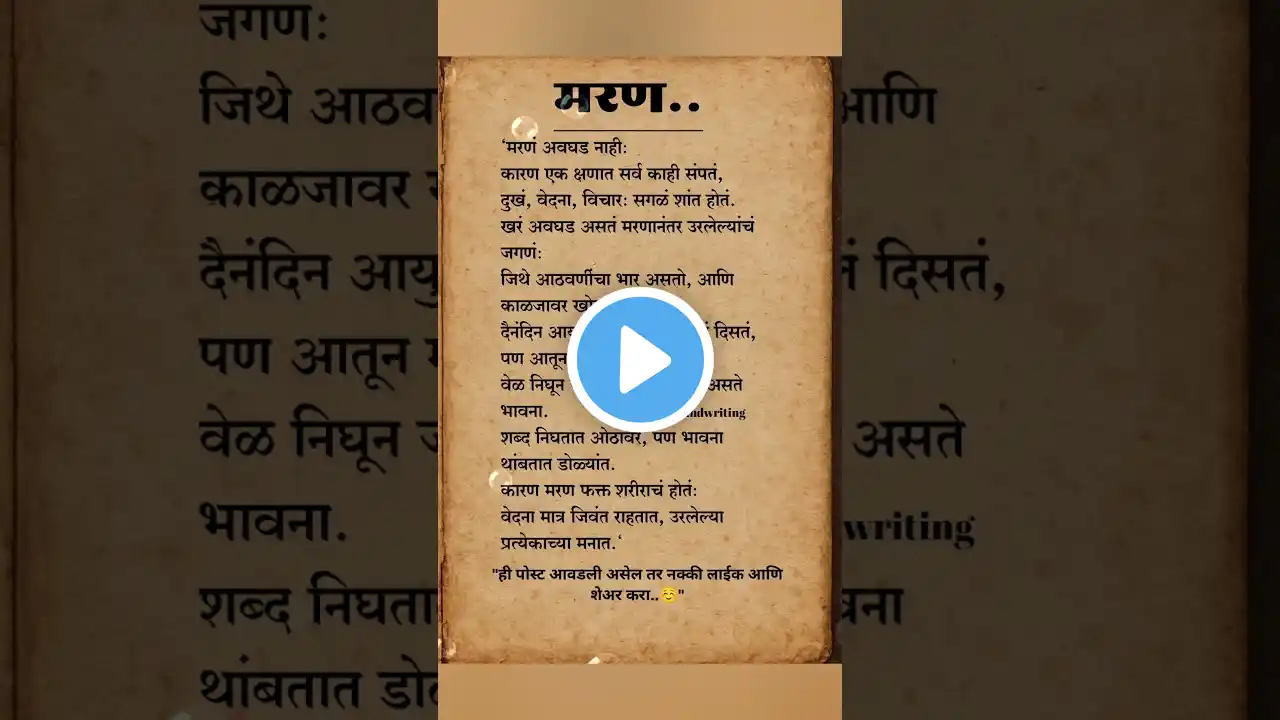 मरण..
‘मरणं अवघड नाही:
कारण एक क्षणात सर्व काही संपतं,
दुखं, वेदना, विचार: सगळं शांत होतं.
खरं अवघड असतं मरणानंतर उरलेल्यांचं
जगणं:
जिथे आठवणींचा भार असतो, आणि
काळजावर
दैनंदिन दिसतं,
पण आतून
वेळ निघून असते
भावना.
शब्द निघतात ओठावर, पण भावना
थांबतात डोळ्यांत.
कारण मरण फक्त शरीराचं होतं:
वेदना मात्र जिवंत राहतात, उरलेल्या
प्रत्येकाच्या मनात.‘
"ही पोस्ट आवडली असेल तर नक्की लाईक आणि
शेअर करा..☺️"